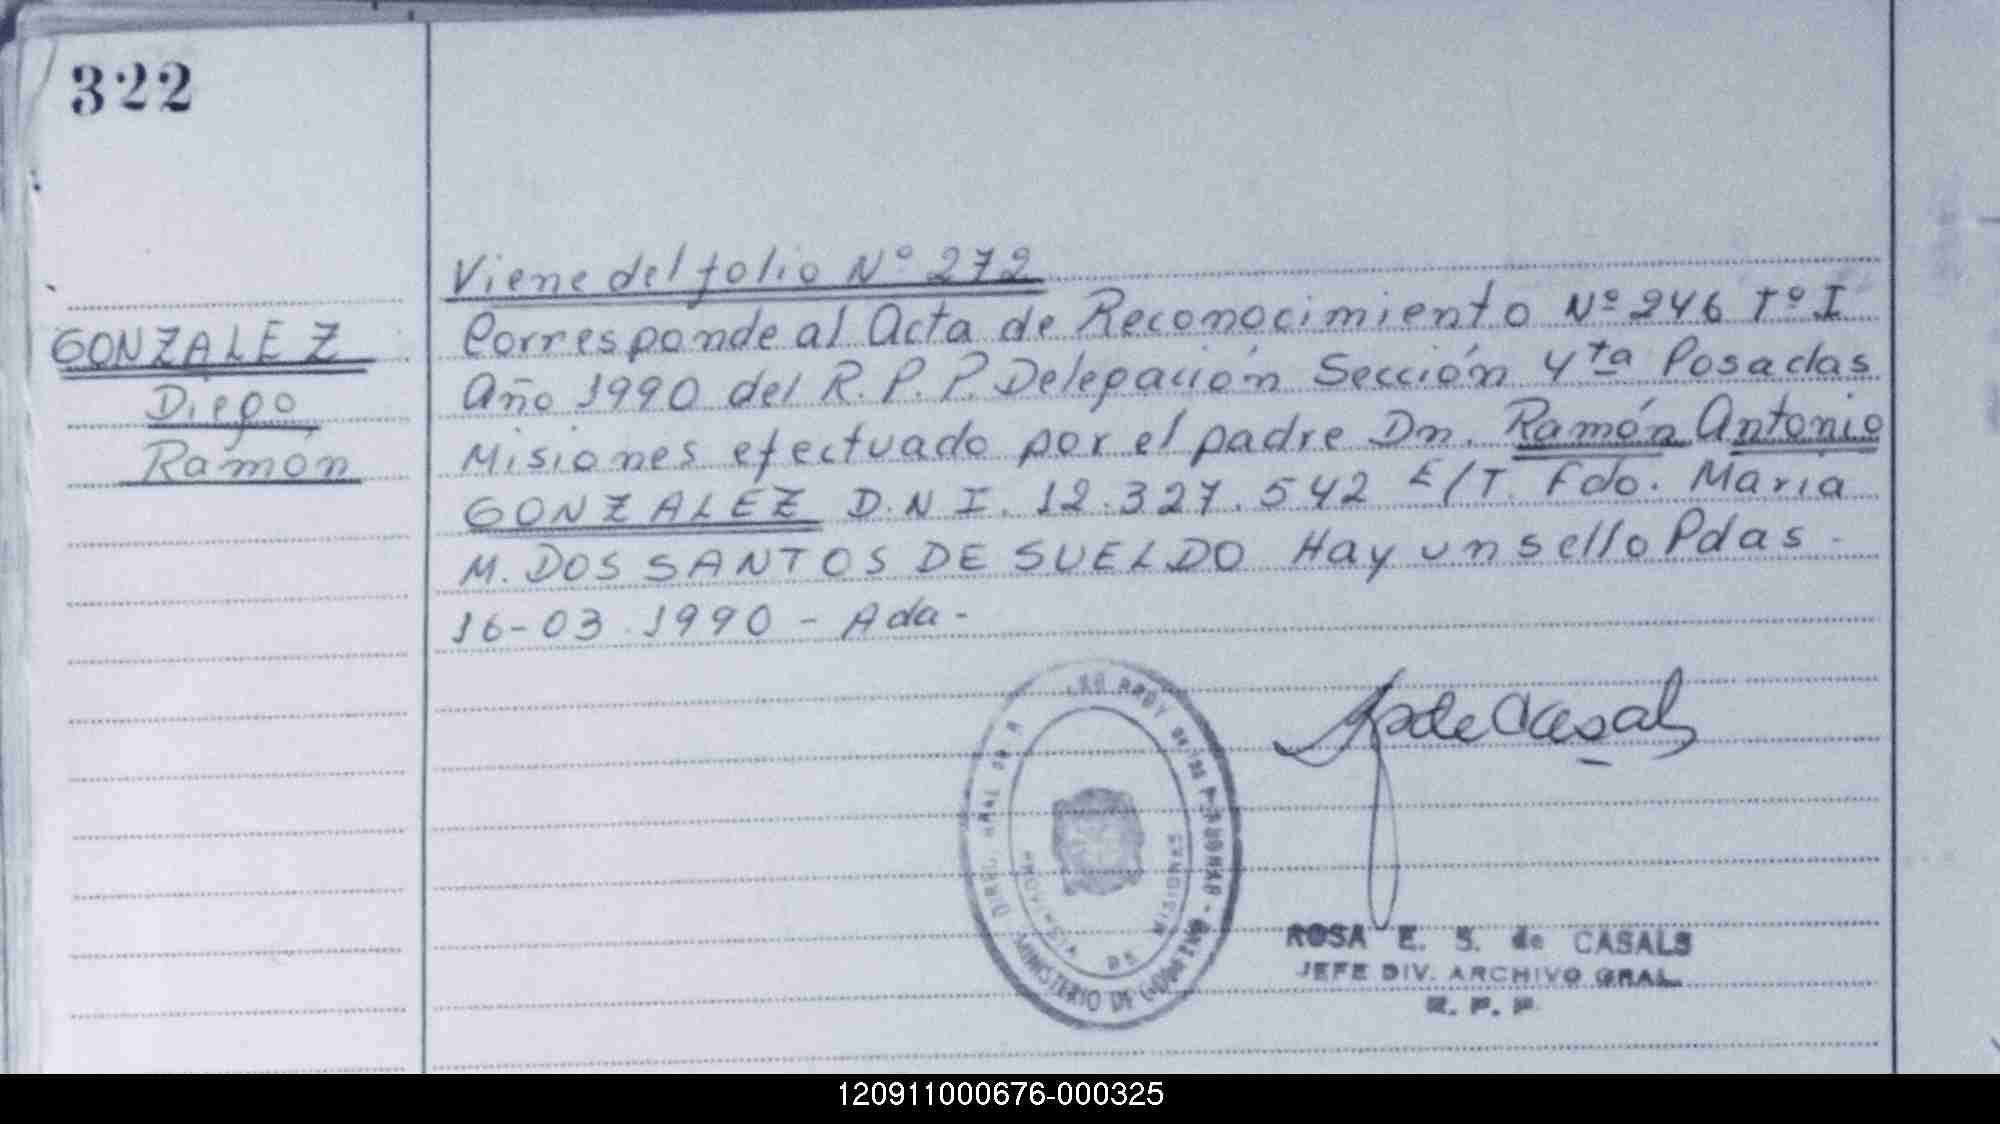 322
GONZALEZ
Diego
Ramón
Viene del folio Nº 272
Corresponde al Acta de Reconocimiento Nº 246 Tº I
Año 1990 del R. P. P. Delegación Sección 4ta Posadas
Misiones efectuado por el padre Dn. Ramón Antonio
GONZALEZ D.N.I. 12.327.542 E/T. Fdo. María
M. DOS SANTOS DE SUELDO Hay un sello Pdas -
16-03.1990 - Ada -
PROVINCIA DE MISIONES
MINISTERIO DE GOBIERNO
de Casals
ROSA E. S. de CASALS
JEFE DIV. ARCHIVO GRAL.
R. P. P.
120911000676-000325